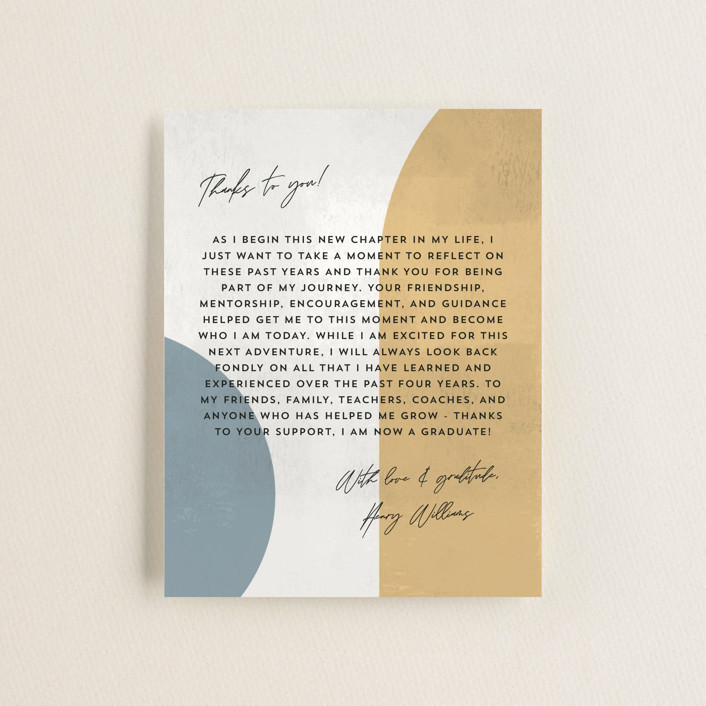 Thanks to you!
AS I BEGIN THIS NEW CHAPTER IN MY LIFE, I
JUST WANT TO TAKE A MOMENT TO REFLECT ON
THESE PAST YEARS AND THANK YOU FOR BEING
PART OF MY JOURNEY. YOUR FRIENDSHIP,
MENTORSHIP, ENCOURAGEMENT, AND GUIDANCE
HELPED GET ME TO THIS MOMENT AND BECOME
WHO I AM TODAY. WHILE I AM EXCITED FOR THIS
NEXT ADVENTURE, I WILL ALWAYS LOOK BACK
FONDLY ON ALL THAT I HAVE LEARNED AND
EXPERIENCED OVER THE PAST FOUR YEARS. TO
MY FRIENDS, FAMILY, TEACHERS, COACHES, AND
ANYONE WHO HAS HELPED ME GROW - THANKS
TO YOUR SUPPORT, I AM NOW A GRADUATE!
With love & gratitude,
Henry Williams